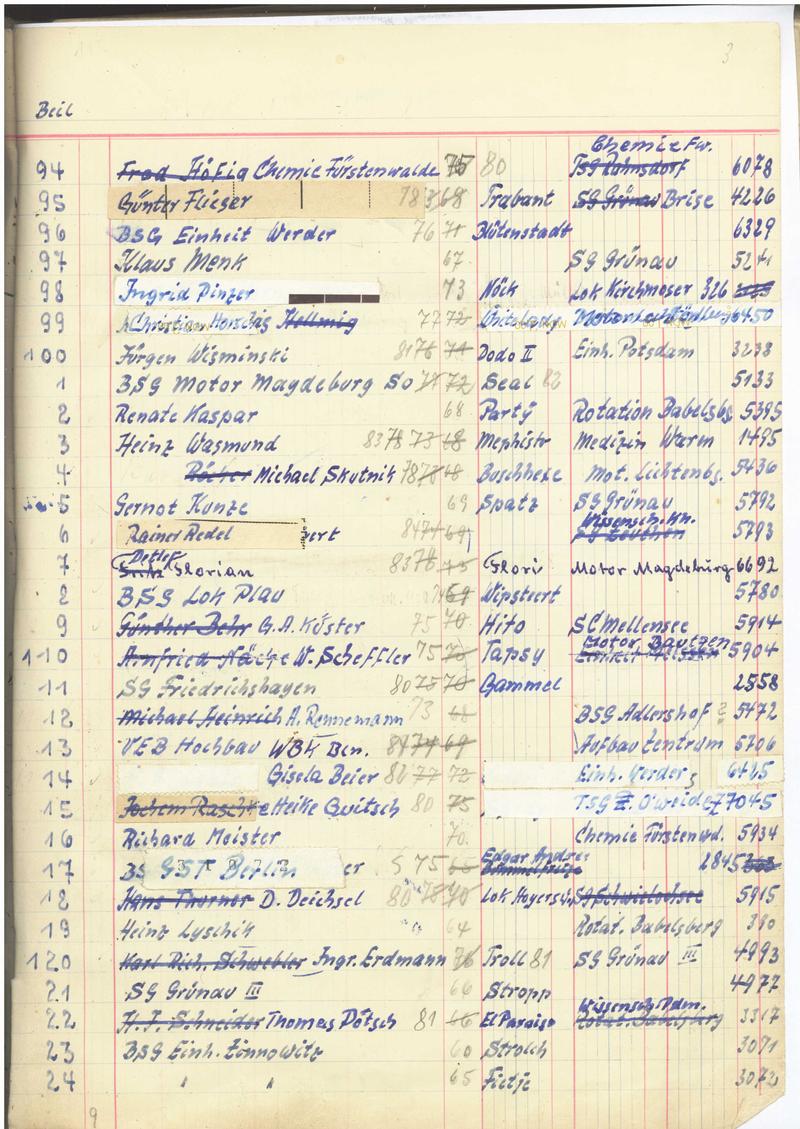 3
Beil
Chemie Fw.
94 Fred Höfig Chemie Fürstenwalde 75 80 TSG Rahnsdorf 6078
95 Günter Flieger 78 68 Trabant SG Grünau Brise 4226
96 BSG Einheit Werder 76 71 Blütenstadt 6329
97 Klaus Menk 67. SG Grünau 5241
98 Ingrid Pinzer 73 Nöck Lok Kirchmöser 326
99 Christian Horschig Hellmig 77 72 6450
100 Jürgen Wisminski 81 76 71 Dodo II Einh. Potsdam 3238
1 BSG Motor Magdeburg So 77 72 Seal 82 5133
2 Renate Kaspar 68 Party Rotation Babelsbg. 5395
3 Heinz Wasmund 83 78 73 68 Mephisto Medizin Warm 1495
4 Michael Skutnik 78 Buschhexe Mot. Lichtenbg. 5436
5 Gernot Kunze 69 Spatz SG Grünau 5792
Wissensch. KW.
6 Rainer Redel ert 84 69 SG Zeuthen 5793
Detlef
7 Florian 83 78 Flori Motor Magdeburg 6692
8 BSG Lok Plau 69 Wipsteert 5780
9 Günther Behr G.A. Küster 75 70 Hito SC Mellensee 5914
Motor Bautzen
110 Arnfried Näcke W. Scheffler 75 70 Tapsy Einheit Meissen 5904
11 SG Friedrichshagen 80 75 70 Gammel 2558
12 Michael Heinrich A. Rennemann 73 68 BSG Adlershof ? 5472
13 VEB Hochbau WBK Bln. 84 74 69 Aufbau Zentrum 6706
14 Gisela Beier 82 77 72 Einh. Werder 6485
15 Jochem Raschke Heike Gwitsch 80 75 TSG E. O'weide 77045
16 Richard Meister 70. Chemie Fürstenwd. 5934
Edgar André
17 BS GST Berlin er S 75 Bimmelfritze 2845
18 Hans Thurner D. Deichsel 80 70 Lok Hoyersw. SG Schwielochsee 5915
19 Heinz Lyschik 64 Rotat. Babelsberg 390
120 Karl Rich. Schwebler Ingr. Erdmann 76 Troll 81 SG Grünau III 4993
21 SG Grünau III 66 Stropp 4977
Wissensch. Pdm.
22 H.J. Schneider Thomas Pötsch 81 66 El Paraiso Rotat. Babelsberg 3317
23 BSG Einh. Zinnowitz 60 Strolch 3071
24 " " 65 Fietje 3072
9